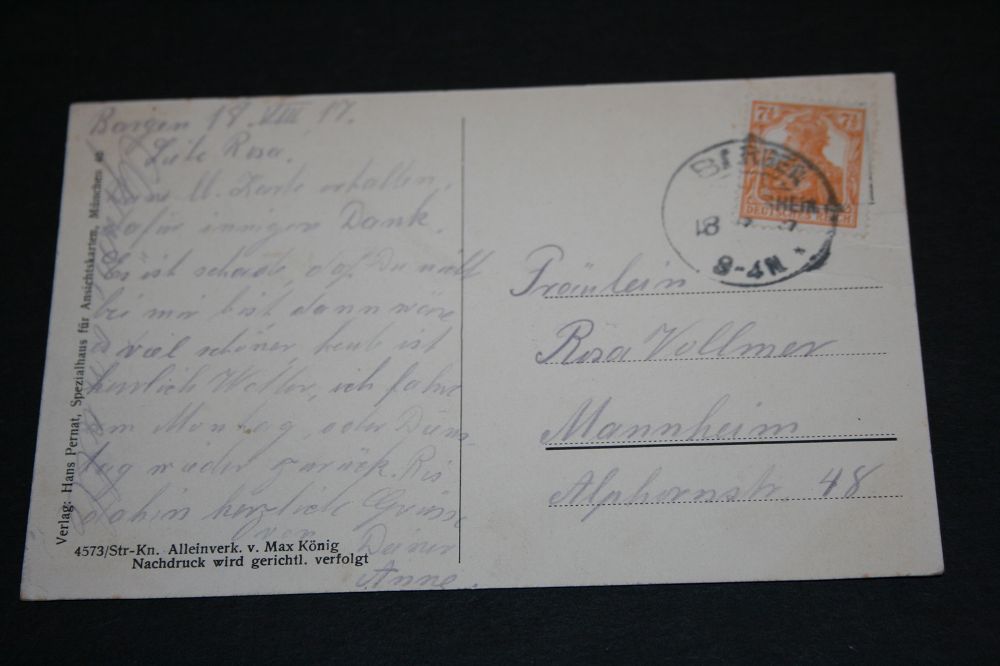 18. VIII 17.
Liebe Rosa.
Deine lb. Karte erhalten,
dafür innigen Dank.
Es ist schade, daß Du nicht
bei mir bist dann wäre
es viel schöner, heute ist
herrlich Wetter, ich fahre
am Montag, oder Diens-
tag wieder zurück. Bis
dahin herzliche Grüsse
von Deiner
Anne.
Verlag: Hans Pernat, Spezialhaus für Ansichtskarten, München
4573/Str-Kn. Alleinverk. v. Max König
Nachdruck wird gerichtl. verfolgt
7½ 7½
DEUTSCHES REICH
18
8-4N *
Fräulein
Rosa Vollmer
Mannheim
Alphornstr. 48